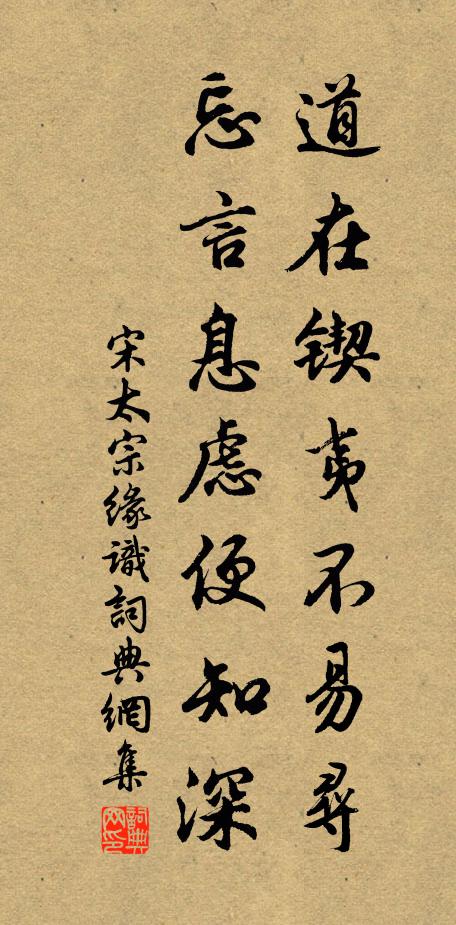 道在锲夷不易尋
忘言息慮便知深
宋太宗緣識詞典網集
詞典网印